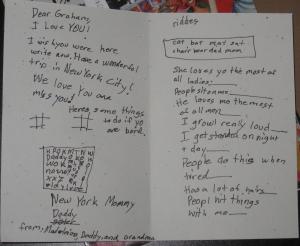 Dear Graham,
I Love YOU!
I wish you were here
write now. Have a wonderful
trip in New York City!
We love You and
miss you!
Heres some things
to do if yo
are bord.
New York Mommy
Daddy
from, Madeleine, Daddy, and grandma
riddles
cat bat mat sat
chair bear dad mom
She loves yo the most of
all ladies.
He loves me the most
of all men
I growl really loud
I get on night
+ day
People do this when
tired
Has a lot of hairs
Peopl hit things
with me